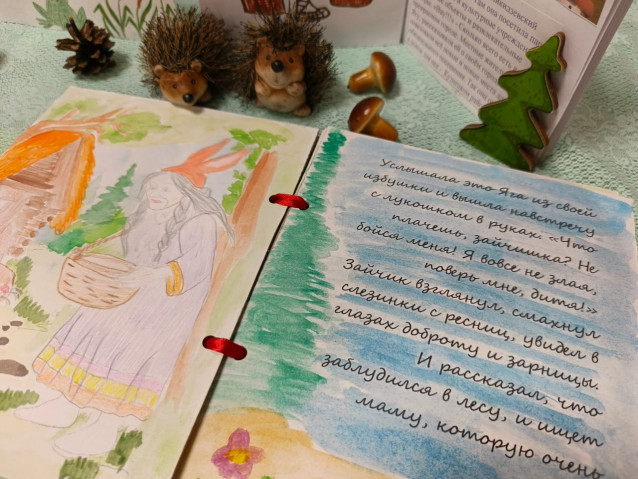 там она посетила
Услышала это Яга из своей
избушки и вышла навстречу
с лукошком в руках: «Что
плачешь, зайчишка? Не
бойся меня! Я вовсе не злая,
поверь мне, дитя!»
Зайчик взглянул, смахнул
слезинки с ресниц, увидел в
глазах доброту и зарницы.
И рассказал, что
заблудился в лесу, и ищет
маму, которую очень